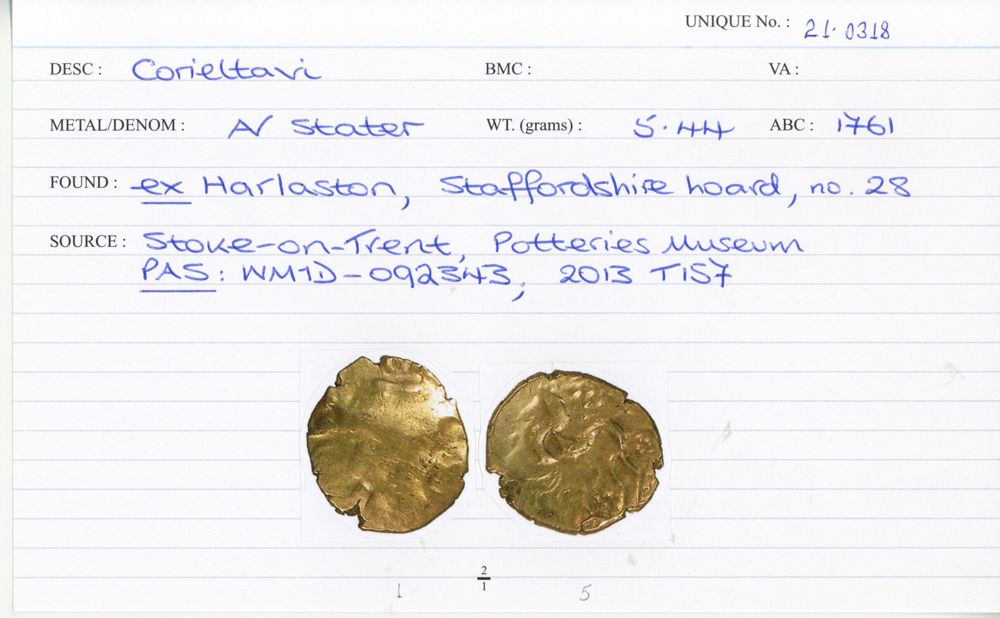 UNIQUE No. : 21.0318
DESC : Corieltavi BMC : VA :
METAL/DENOM : AV Stater WT. (grams) : 5.44 ABC : 1761
FOUND : ex Harlaston, Staffordshire hoard, no. 28
SOURCE : Stoke-on-Trent, Potteries Museum
PAS: WMID-092343, 2013 T157
2
1
1 5